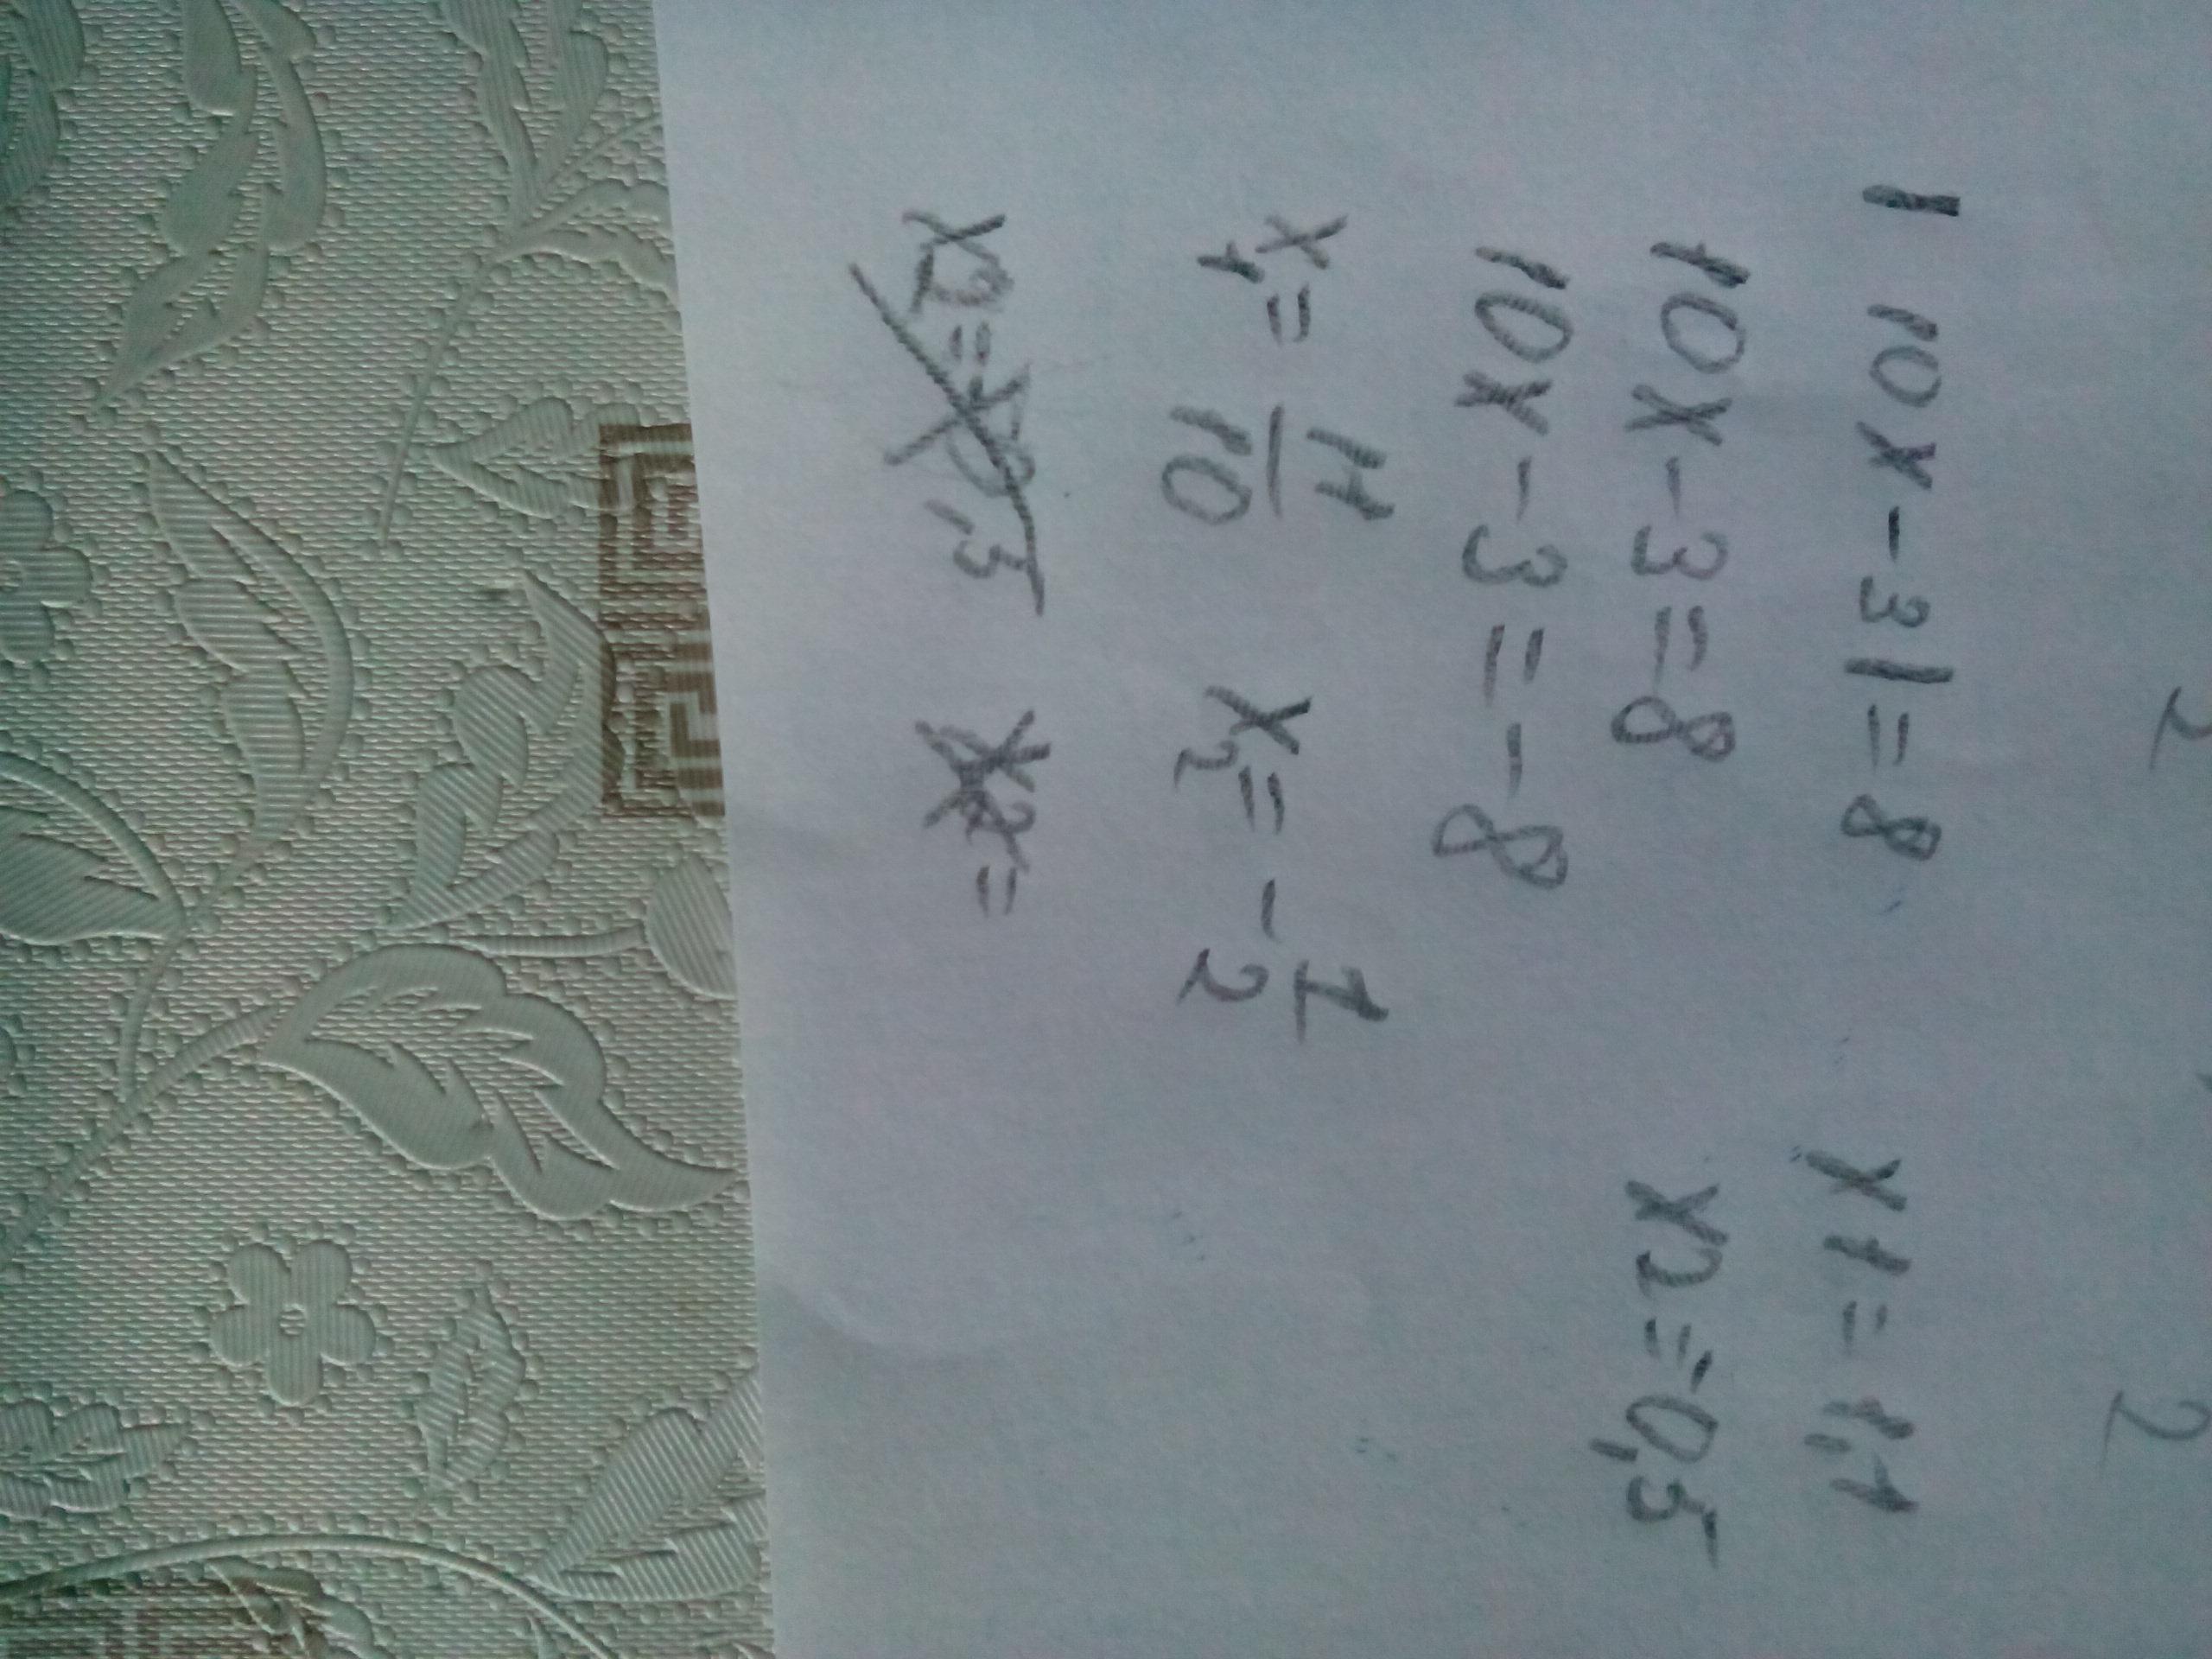 2 2
|10x-3|=8 x1=1,1
10x-3=8 x2=-0,5
10x-3=-8
x₁=11/10 x₂=-1/2
x2= x2=